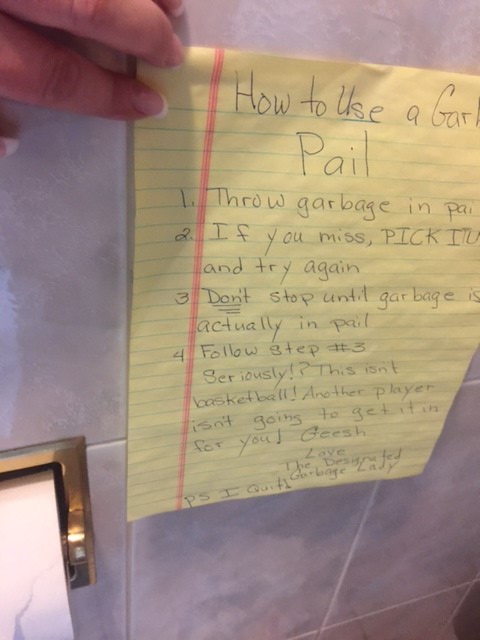 How to Use a Garb
Pail
1. Throw garbage in pai
2. If you miss, PICK IT U
and try again
3 Don't stop until garbage is
actually in pail
4 Follow step #3
Seriously!? This isn't
basketball! Another player
isn't going to get it in
for you! Geesh
Love
The Designated
Garbage Lady
PS I Quit!